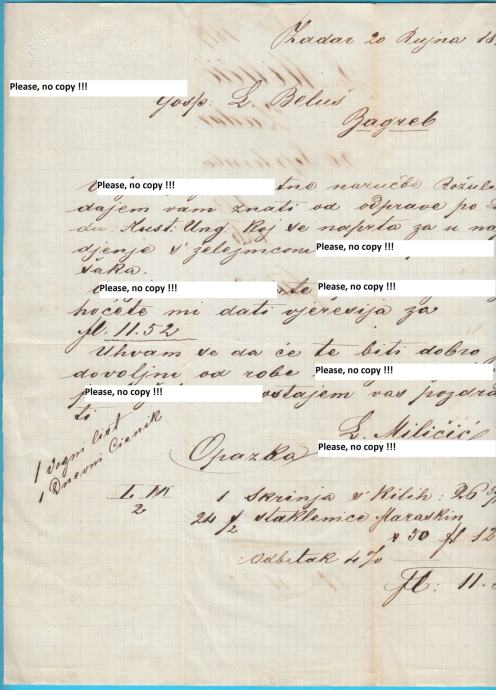 Zadar 20 Rujna 18
Please, no copy !!!
Gosp: L. Beluš
Zagreb
Please, no copy !!! naručbe
dajem vam znati od odprave po
du. Aust: Ung. koj se naprta za u na
djenje s' Please, no copy !!!
šaka.
Please, no copy !!! Please, no copy !!!
hoćete mi dati vjeresija za
fl. 11.52
Uhvam se da će te biti dobro
dovoljni od robe Please, no copy !!!
Please, no copy !!! ostajem vas pozdra
ti
L. Miličić
Please, no copy !!!
Opazka
1 list
1 Dnevni Cienik
L M
2
1 Skrinja s' Kilih: 26
24 1/2 staklenice Maraskin
50 fl 12
Odbitak 4%
fl: 11.